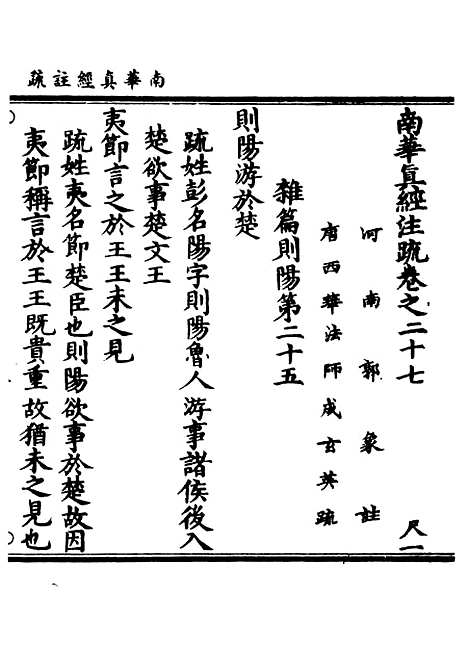 南華真經註疏
南華真經注疏卷之二十七 尺一
河南郭象註
唐西華法師成玄英疏
雜篇則陽第二十五
則陽游於楚
疏姓彭名陽字則陽魯人游事諸侯後入
楚欲事楚文王
夷節言之於王王未之見
疏姓夷名節楚臣也則陽欲事於楚故因
夷節稱言於王王既貴重故猶未之見也